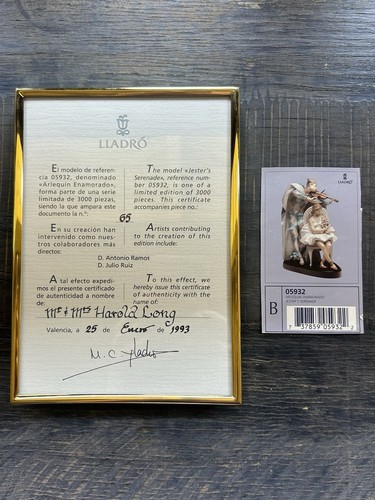 LLADRÓ
El modelo de referen-
cia 05932, denominado
«Arlequin Enamorado»,
forma parte de una serie
limitada de 3000 piezas,
siendo la que ampara este
documento la n.º:
The model «Jester's
Serenade», reference num-
ber 05932, is one of a
limited edition of 3000
pieces. This certificate
accompanies piece no.:
65
En su creación han
intervenido como nues-
tros colaboradores más
directos:
Artists contributing
to the creation of this
edition include:
D. Antonio Ramos
D. Julio Ruiz
A tal efecto expedi-
mos el presente certificado
de autenticidad a nombre
de:
To this effect, we
hereby issue this certificate
of authenticity with the
name of:
Mr & Mrs Harold Long
Valencia, a 25 de Enero de 1993
LLADRÓ
B
05932
ARLEQUIN ENAMORADO
JESTER'S SERENADE
7 37859 05932 2